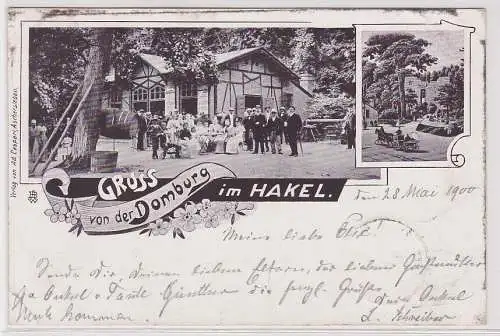 Verlag von Ad. Caspari, Aschersleben.
GRUSS
von der Domburg
im HAKEL.
den 28 Mai 1900
Meine liebe
Sende Dir Deinen lieben Eltern, der lieben Großmutter
Onkel Tante Günther die Grüße
Euer Onkel
L. Schreiber